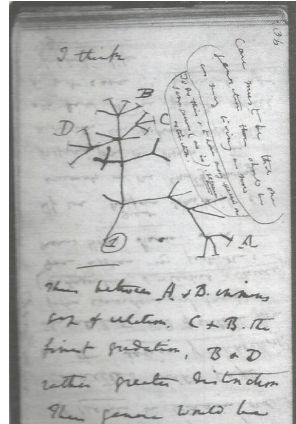 36
I think
Case must be that one
generation then should be
as many living as now
To do this & to have many species in
same genus (as is) requires
extinction.
B
C
D
A
1
Thus between A & B. immens
gap of relation. C & B. the
finest gradation, B & D
rather greater distinction
Thus genera would be